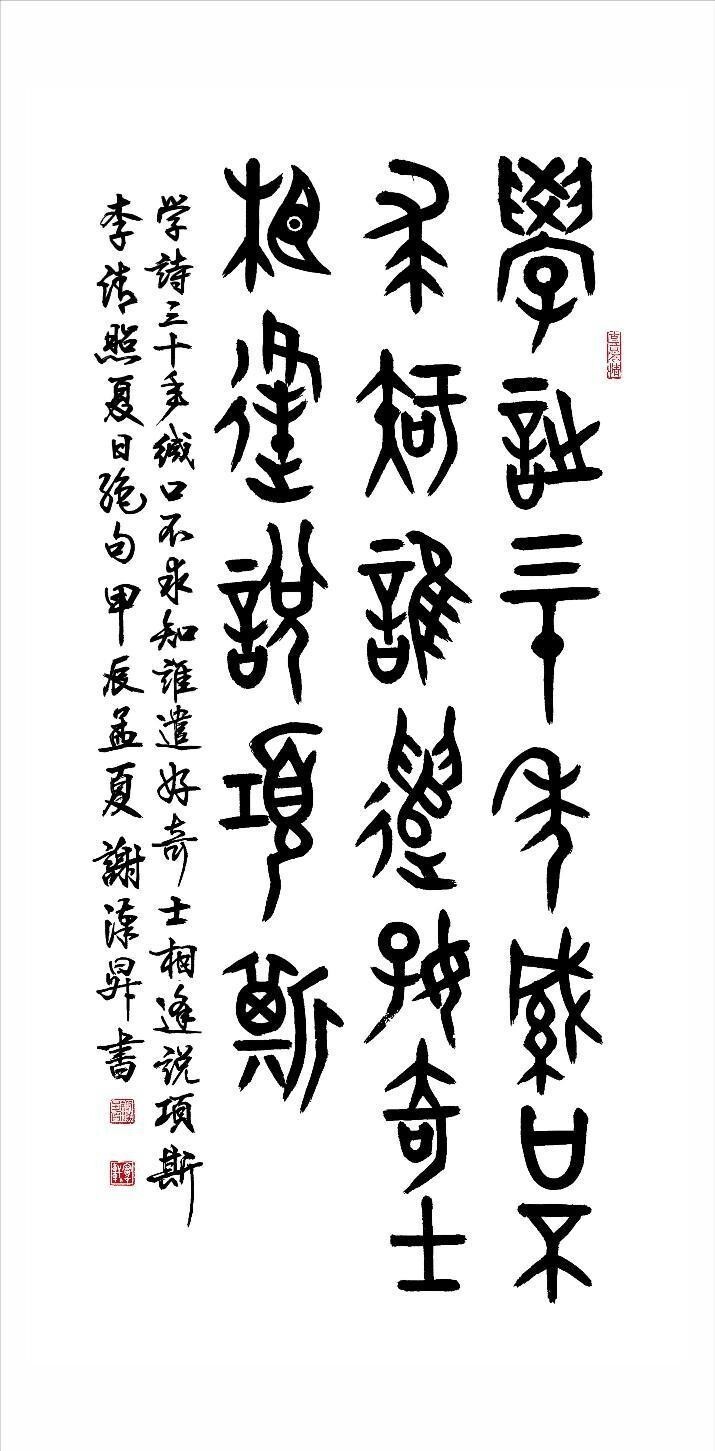 學詩三十年緘口不
求知誰遣好奇士
相逢說項斯
学詩三十年緘口不求知誰遣好奇士相逢説項斯
李清照夏日绝句甲辰孟夏謝漾昇書